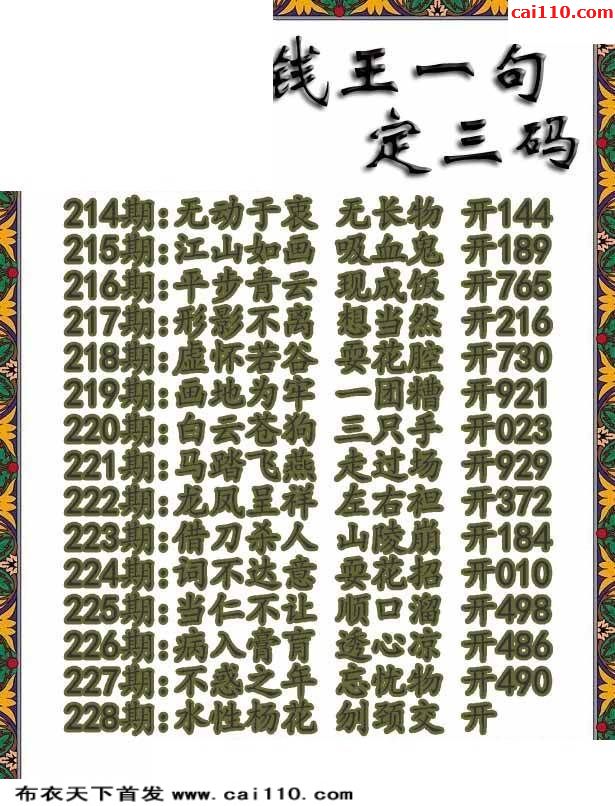 cai110.com
钱王一句
定三码
214期:无动于衷 无长物 开144
215期:江山如画 吸血鬼 开189
216期:平步青云 现成饭 开765
217期:形影不离 想当然 开216
218期:虚怀若谷 耍花腔 开730
219期:画地为牢 一团糟 开921
220期:白云苍狗 三只手 开023
221期:马踏飞燕 走过场 开929
222期:龙凤呈祥 左右袒 开372
223期:借刀杀人 山陵崩 开184
224期:词不达意 耍花招 开010
225期:当仁不让 顺口溜 开498
226期:病入膏肓 透心凉 开486
227期:不惑之年 忘忧物 开490
228期:水性杨花 刎颈交 开
布衣天下首发 www.cai110.com